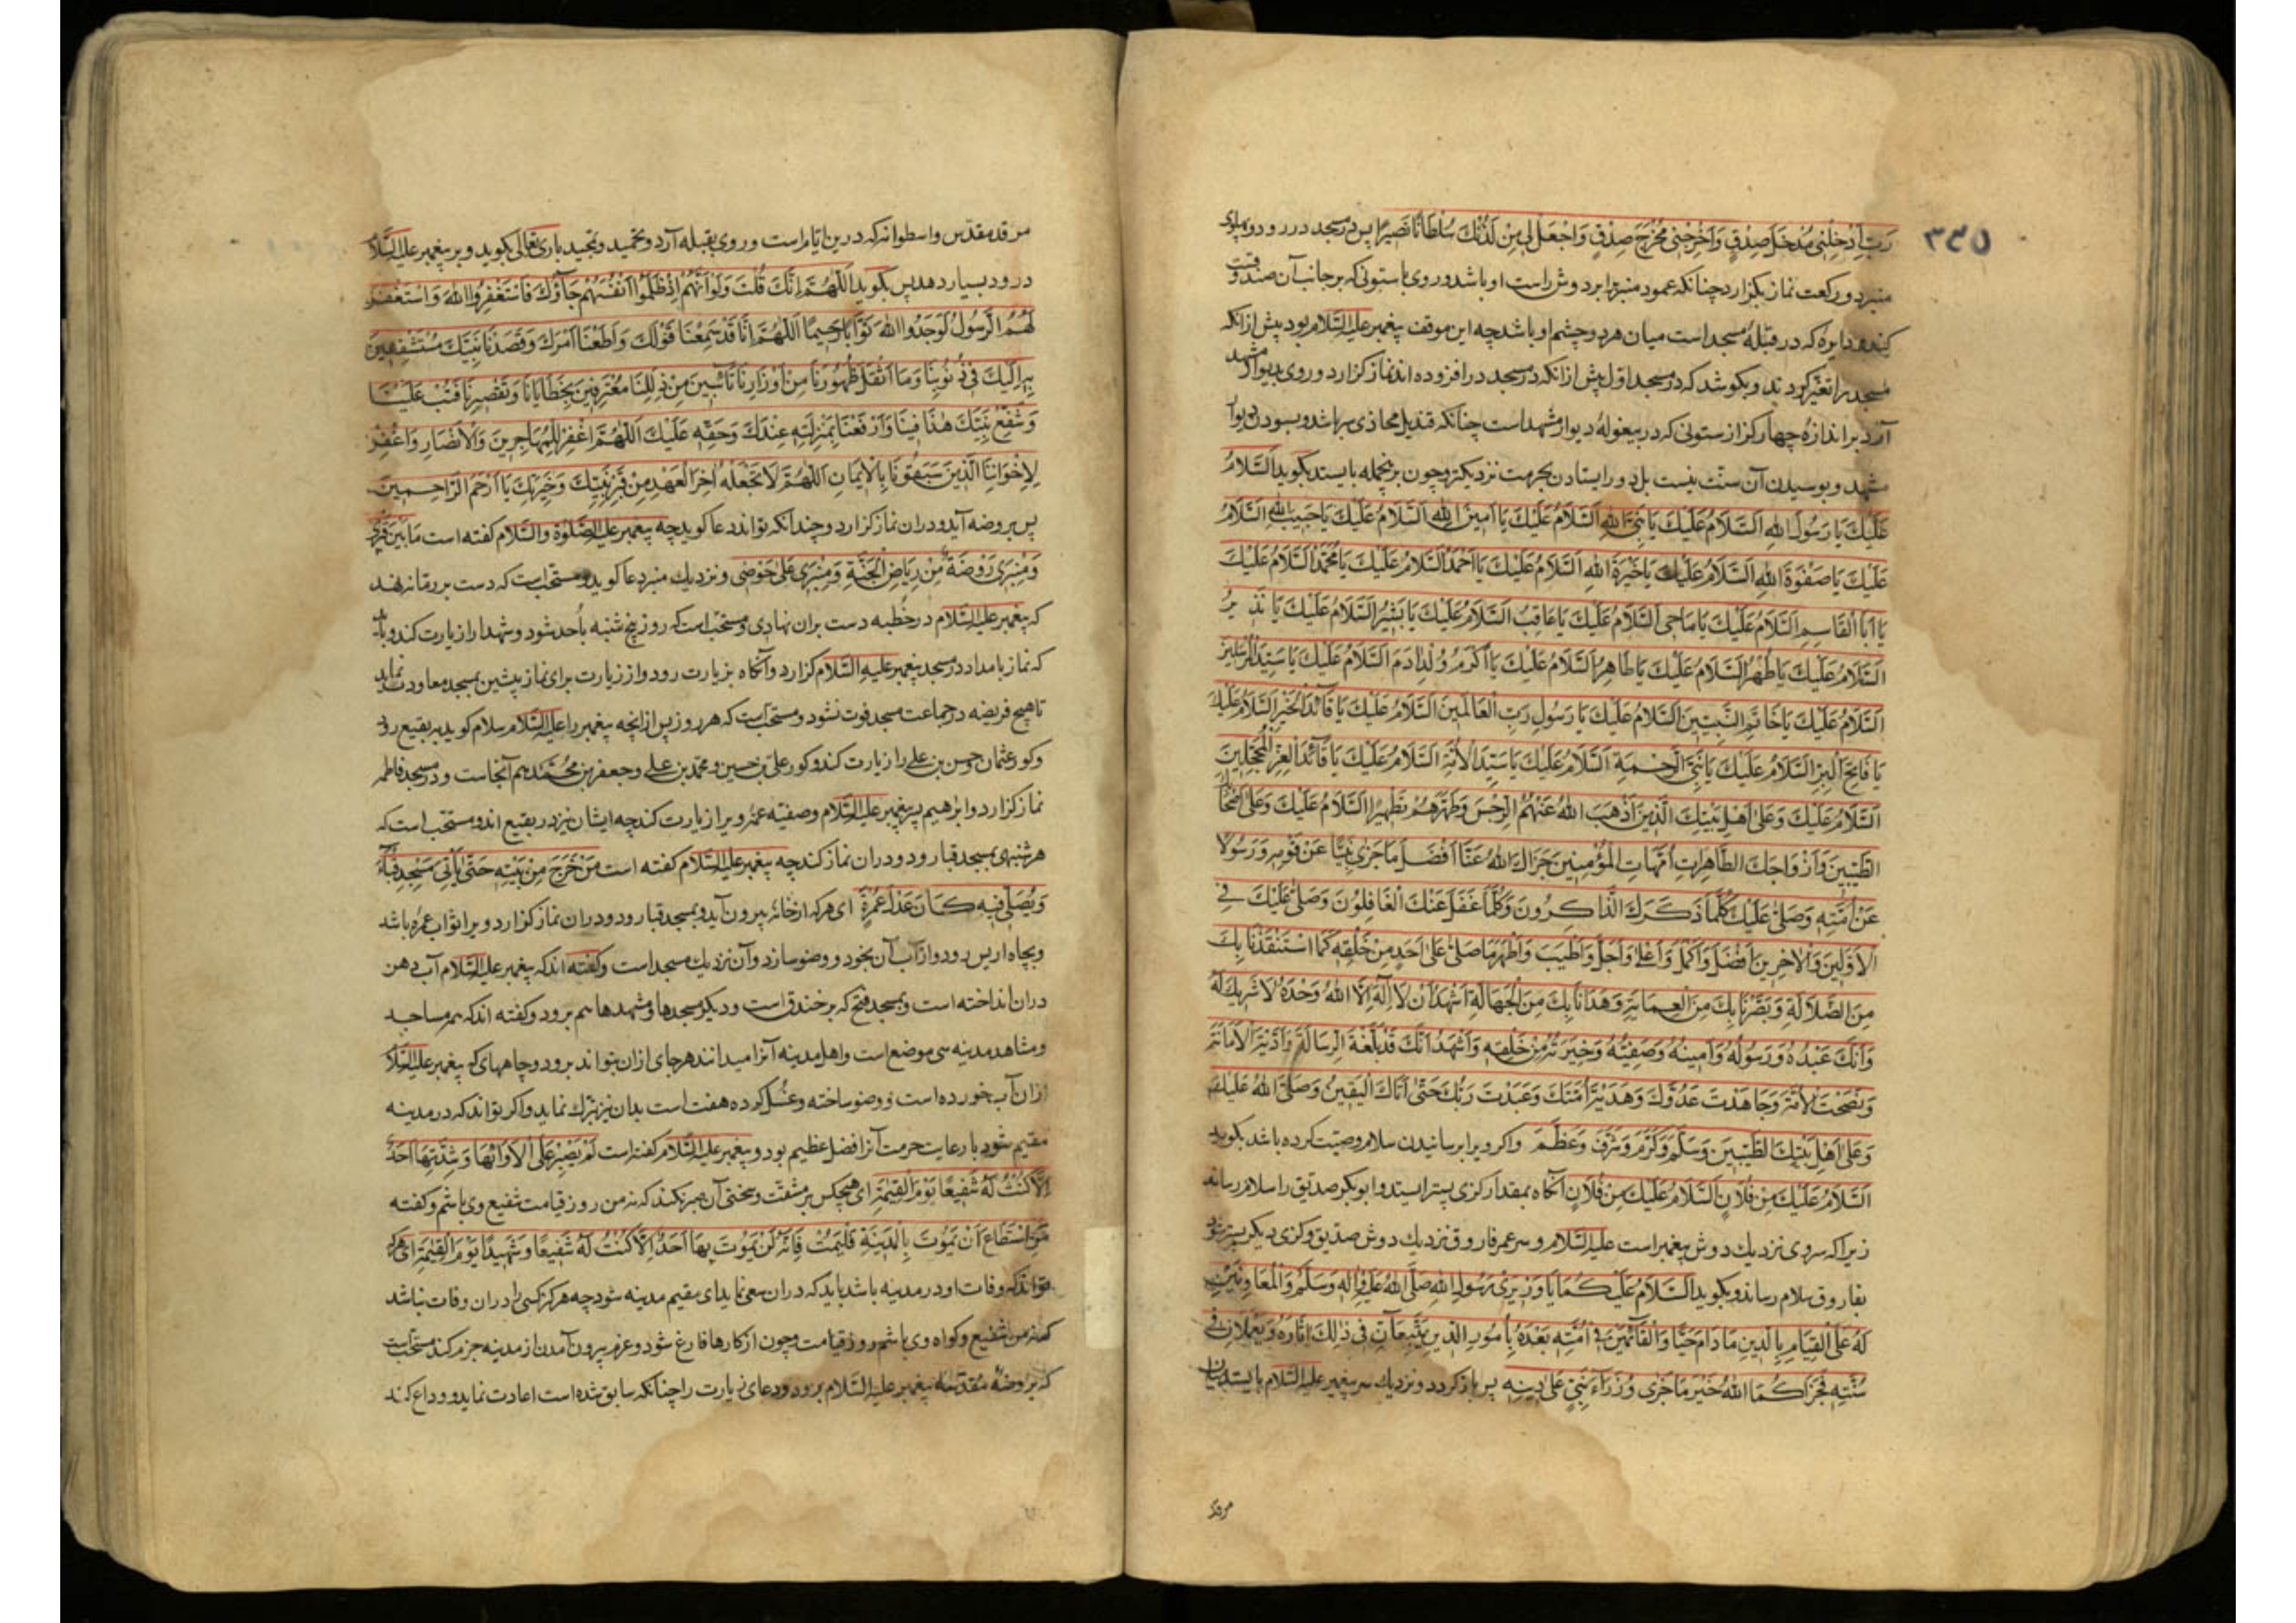 ۳۳۵
رَبِّ اَدْخِلْنِی مُدْخَلَ صِدْقٍ وَاَخْرِجْنِی مُخْرَجَ صِدْقٍ وَاجْعَلْ لِی مِنْ لَدُنْكَ سُلْطَانًا نَصِیرًا پس در مسجد در رود و پهلوی
منبر دو رکعت نماز بکزارد چنانکه عمود منبر برابر دوش راست او باشد و روی با ستونی که بر جانب آن صندوقست
کند و دایره که در قبلهٔ مسجد است میان هر دو چشم او باشد چه این موقف پیغمبر علیه السّلام بود پیش از انکه
مسجد را تغیّر کردند و بکوشد که در مسجد اول پیش از انکه در مسجد در افزوده اند نماز کزارد و روی بدیوار مشهد
آرد بر اندازه چهار کز از ستونی که در بیغولهٔ دیوار مشهد است چنانکه قندیل محاذی سر باشد و بسودن دیوار
مشهد و بوسیدن آن سنّت نیست بل دور ایستادن بحرمت نزدیکتر و چون برینجمله بایستد بکوید اَلسَّلَامُ
عَلَیْكَ یَا رَسُولَ اللهِ اَلسَّلَامُ عَلَیْكَ یَا نَبِیَّ اللهِ اَلسَّلَامُ عَلَیْكَ یَا اَمِینَ اللهِ اَلسَّلَامُ عَلَیْكَ یَا حَبِیبَ اللهِ اَلسَّلَامُ
عَلَیْكَ یَا صَفْوَةَ اللهِ اَلسَّلَامُ عَلَیْكَ یَا خِیَرَةَ اللهِ اَلسَّلَامُ عَلَیْكَ یَا اَحْمَدُ اَلسَّلَامُ عَلَیْكَ یَا مُحَمَّدُ اَلسَّلَامُ عَلَیْكَ
یَا اَبَا الْقَاسِمِ اَلسَّلَامُ عَلَیْكَ یَا مَاحِی اَلسَّلَامُ عَلَیْكَ یَا عَاقِبُ اَلسَّلَامُ عَلَیْكَ یَا بَشِیرُ اَلسَّلَامُ عَلَیْكَ یَا نَذِیرُ
اَلسَّلَامُ عَلَیْكَ یَا طُهْرُ اَلسَّلَامُ عَلَیْكَ یَا طَاهِرُ اَلسَّلَامُ عَلَیْكَ یَا اَكْرَمَ وُلْدِ اٰدَمَ اَلسَّلَامُ عَلَیْكَ یَا سَیِّدَ الْمُرْسَلِینَ
اَلسَّلَامُ عَلَیْكَ یَا خَاتَمَ النَّبِیِّینَ اَلسَّلَامُ عَلَیْكَ یَا رَسُولَ رَبِّ الْعَالَمِینَ اَلسَّلَامُ عَلَیْكَ یَا قَائِدَ الْخَیْرِ اَلسَّلَامُ عَلَیْكَ
یَا فَاتِحَ الْبِرِّ اَلسَّلَامُ عَلَیْكَ یَا نَبِیَّ الرَّحْمَةِ اَلسَّلَامُ عَلَیْكَ یَا سَیِّدَ الْاُمَّةِ اَلسَّلَامُ عَلَیْكَ یَا قَائِدَ الْغُرِّ الْمُحَجَّلِینَ
اَلسَّلَامُ عَلَیْكَ وَعَلٰی اَهْلِ بَیْتِكَ الَّذِینَ اَذْهَبَ اللهُ عَنْهُمُ الرِّجْسَ وَطَهَّرَهُمْ تَطْهِیرًا اَلسَّلَامُ عَلَیْكَ وَعَلٰی اَصْحَابِكَ
الطَّیِّبِینَ وَاَزْوَاجِكَ الطَّاهِرَاتِ اُمَّهَاتِ الْمُؤْمِنِینَ جَزَاكَ اللهُ عَنَّا اَفْضَلَ مَا جَزٰی نَبِیًّا عَنْ قَوْمِهِ وَرَسُولًا
عَنْ اُمَّتِهِ وَصَلّٰی عَلَیْكَ كُلَّمَا ذَكَرَكَ الذَّاكِرُونَ وَكُلَّمَا غَفَلَ عَنْكَ الْغَافِلُونَ وَصَلّٰی عَلَیْكَ فِی
الْاَوَّلِینَ وَالْاٰخِرِینَ اَفْضَلَ وَاَكْمَلَ وَاَعْلٰی وَاَجَلَّ وَاَطْیَبَ وَاَطْهَرَ مَا صَلّٰی عَلٰی اَحَدٍ مِنْ خَلْقِهِ كَمَا اسْتَنْقَذَنَا بِكَ
مِنَ الضَّلَالَةِ وَبَصَّرَنَا بِكَ مِنَ الْعِمَایَةِ وَهَدَانَا بِكَ مِنَ الْجَهَالَةِ اَشْهَدُ اَنْ لَا اِلٰهَ اِلَّا اللهُ وَحْدَهُ لَا شَرِیكَ لَهُ
وَاَنَّكَ عَبْدُهُ وَرَسُولُهُ وَاَمِینُهُ وَصَفِیُّهُ وَخِیَرَتُهُ مِنْ خَلْقِهِ وَاَشْهَدُ اَنَّكَ قَدْ بَلَّغْتَ الرِّسَالَةَ وَاَدَّیْتَ الْاَمَانَةَ
وَنَصَحْتَ الْاُمَّةَ وَجَاهَدْتَ عَدُوَّكَ وَهَدَیْتَ اُمَّتَكَ وَعَبَدْتَ رَبَّكَ حَتّٰی اَتَاكَ الْیَقِینُ وَصَلَّی اللهُ عَلَیْكَ
وَعَلٰی اَهْلِ بَیْتِكَ الطَّیِّبِینَ وَسَلَّمَ وَكَرَّمَ وَشَرَّفَ وَعَظَّمَ واکر ویرا برسانیدن سلام وصیّت کرده باشد بکوید
اَلسَّلَامُ عَلَیْكَ مِنْ فُلَانٍ اَلسَّلَامُ عَلَیْكَ مِنْ فُلَانٍ آنکاه بمقدار کزی پستر ایستد و ابوبکر صدیق را سلام رساند
زیرا که سر وی نزدیك دوش پیغمبر است علیه السّلام و سر عمر فاروق نزدیك دوش صدیق و کزی دیکر پستر شود
بفاروق سلام رساند و بکوید اَلسَّلَامُ عَلَیْكُمَا یَا وَزِیرَیْ رَسُولِ اللهِ صَلَّی اللهُ عَلَیْهِ وَاٰلِهِ وَسَلَّمَ وَالْمُعَاوِنَیْنِ
لَهُ عَلَی الْقِیَامِ بِالدِّینِ مَا دَامَ حَیًّا وَالْقَائِمَیْنَ فِی اُمَّتِهِ بَعْدَهُ بِاُمُورِ الدِّینِ یَتَّبِعَانِ فِی ذٰلِكَ اٰثَارَهُ وَیَعْمَلَانِ فِی
سُنَّتِهِ فَجَزَاكُمَا اللهُ خَیْرَ مَا جَزٰی وُزَرَاءَ نَبِیٍّ عَلٰی دِینِهِ پس باز کردد و نزدیك سر پیغمبر علیه السّلام بایستد میان
مرقد
مرقد مقدّس و اسطوانه که درین ایّام راست و روی بقبله آرد و تحمید و تمجید باری تعالی بکوید و بر پیغمبر علیه السّلام
درود بسیار دهد پس بکوید اَللّٰهُمَّ اِنَّكَ قُلْتَ وَلَوْ اَنَّهُمْ اِذْ ظَلَمُوا اَنْفُسَهُمْ جَاؤُكَ فَاسْتَغْفَرُوا اللهَ وَاسْتَغْفَرَ
لَهُمُ الرَّسُولُ لَوَجَدُوا اللهَ تَوَّابًا رَحِیمًا اَللّٰهُمَّ اِنَّا قَدْ سَمِعْنَا قَوْلَكَ وَاَطَعْنَا اَمْرَكَ وَقَصَدْنَا نَبِیَّكَ مُسْتَشْفِعِینَ
بِهِ اِلَیْكَ فِی ذُنُوبِنَا وَمَا اَثْقَلَ ظُهُورَنَا مِنْ اَوْزَارِنَا تَائِبِینَ مِنْ ذَلَلِنَا مُعْتَرِفِینَ بِخَطَایَانَا وَتَقْصِیرِنَا فَتُبْ عَلَیْنَا
وَشَفِّعْ نَبِیَّكَ هٰذَا فِینَا وَارْفَعْنَا بِمَنْزِلَتِهِ عِنْدَكَ وَحَقِّهِ عَلَیْكَ اَللّٰهُمَّ اغْفِرْ لِلْمُهَاجِرِینَ وَالْاَنْصَارِ وَاغْفِرْ
لِاِخْوَانِنَا الَّذِینَ سَبَقُونَا بِالْاِیمَانِ اَللّٰهُمَّ لَا تَجْعَلْهُ اٰخِرَ الْعَهْدِ مِنْ قَبْرِ نَبِیِّكَ وَحَرَمِكَ یَا اَرْحَمَ الرَّاحِمِینَ
پس بروضه آید و دران نماز کزارد و چندانکه تواند دعا کوید چه پیغمبر علیه الصّلوة والسّلام کفته است مَا بَیْنَ قَبْرِی
وَمِنْبَرِی رَوْضَةٌ مِنْ رِیَاضِ الْجَنَّةِ وَمِنْبَرِی عَلٰی حَوْضِی و نزدیك منبر دعا کوید و مستحبّ است که دست بر رمّانه نهد
که پیغمبر علیه السّلام در خطبه دست بران نهادی و مستحبّ است که روز پنج شنبه باُحد شود و شهدا را زیارت کند و باید
که نماز بامداد در مسجد پیغمبر علیه السّلام کزارد و آنکاه بزیارت رود و از زیارت برای نماز پیشین بمسجد معاودت نماید
تا هیچ فریضه در جماعت مسجد فوت نشود و مستحبّ است که هر روز پس از انچه پیغمبر را علیه السّلام سلام کوید ببقیع رود
و کور عثمان و حسن بن علی را زیارت کند و کور علی بن حسین و محمد بن علی و جعفر بن محمّد هم آنجاست و در مسجد فاطمه
نماز کزارد و ابراهیم پسر پیغمبر علیه السّلام و صفیّه عمّه ویرا زیارت کند چه ایشان نیز در بقیع اند و مستحب است که
هر شنبهی بمسجد قبا رود و دران نماز کند چه پیغمبر علیه السّلام کفته است مَنْ خَرَجَ مِنْ بَیْتِهِ حَتّٰی یَأْتِیَ مَسْجِدَ قُبَاءَ
وَیُصَلِّیَ فِیهِ كَانَ عَدْلَ عُمْرَةٍ ای هر که از خانه بیرون آید و بمسجد قبا رود و دران نماز کزارد ویرا ثواب عمره باشد
و بچاه اریس رود و از آب آن بخورد و وضو سازد و آن نزدیك مسجد است و کفته اند که پیغمبر علیه السّلام آب دهن
دران انداخته است و بمسجد فتح که بر خندق است و دیکر مسجدها و مشهدها هم برود و کفته اند که همه مساجد
و مشاهد مدینه سی موضع است و اهل مدینه آنرا میدانند هر جای ازان بتواند برود و چاههای که پیغمبر علیه السّلام
ازان آب خورده است و وضو ساخته و غسل کرده هفت است بدان نیز تبرّك نماید و اکر تواند که در مدینه
مقیم شود با رعایت حرمت آنرا فضل عظیم بود و پیغمبر علیه السّلام کفته است لَمْ یَصْبِرْ عَلٰی لَأْوَائِهَا وَشِدَّتِهَا اَحَدٌ
اِلَّا كُنْتُ لَهُ شَفِیعًا یَوْمَ الْقِیٰمَةِ ای هیچکس بر مشقّت و سختی آن صبر نکند که نه من روز قیامت شفیع وی باشم و کفته
مَنِ اسْتَطَاعَ اَنْ یَمُوتَ بِالْمَدِینَةِ فَلْیَمُتْ فَاِنَّهُ لَنْ یَمُوتَ بِهَا اَحَدٌ اِلَّا كُنْتُ لَهُ شَفِیعًا وَشَهِیدًا یَوْمَ الْقِیٰمَةِ ای هر که
تواند که وفات او در مدینه باشد باید که دران سعی نماید ای مقیم مدینه شود چه هرکز کسی را دران وفات نباشد
که نه من شفیع و کواه وی باشم روز قیامت و چون از کارها فارغ شود و عزم بیرون آمدن از مدینه جزم کند مستحبّ است
که بروضهٔ مقدّسه پیغمبر علیه السّلام برود و دعای زیارت را چنانکه سابق شده است اعادت نماید و وداع کند